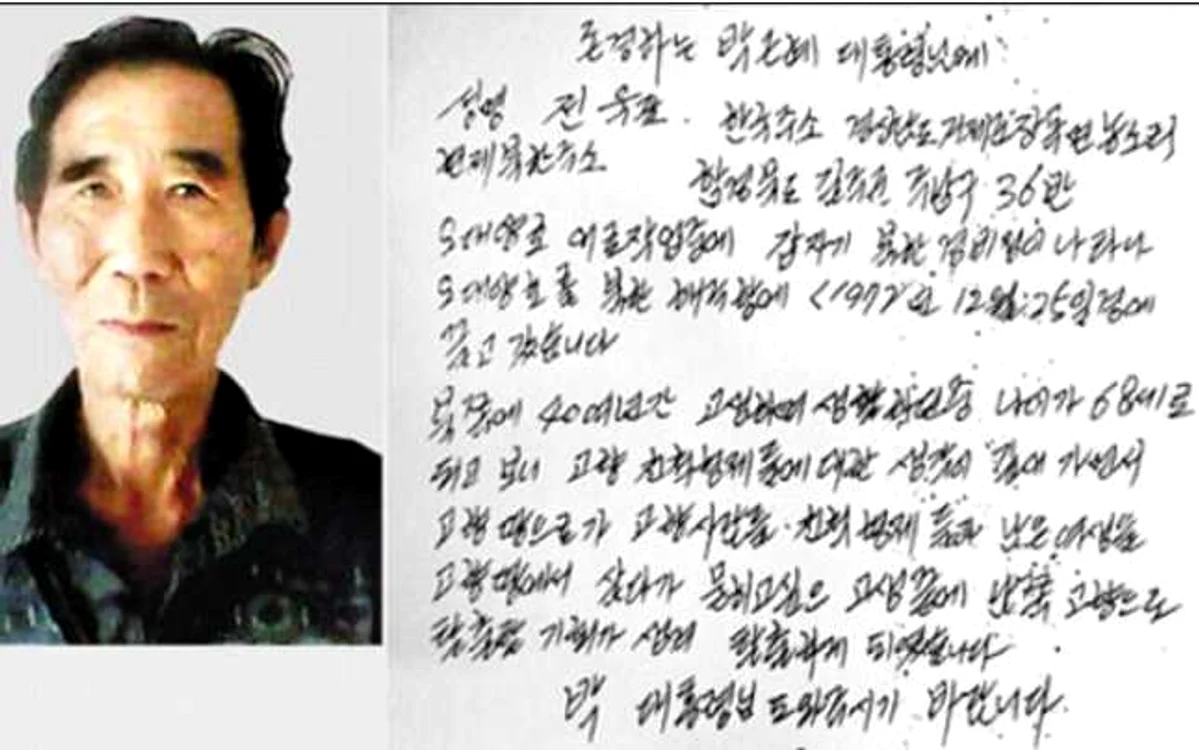 존경하는 박근혜 대통령님에
성명 전욱표. 한국주소 경상남도 거제도 장목면 농소리
현제북한주소 함경북도 길주군 주남구 36반
오대양호 어로작업중에 갑자기 북한 경비정이 나타나
오대양호를 북한 해주항에 <1972년 12월:25일경에
끌고 갔습니다
북쪽에 40여년간 고생하며 생활 나이가 68세로
되고 보니 고향 친척형제들에 대한 생각이 깊어 가면서
고향땅으로 가 고향사람들.친척 형제들과 남은 여생을
고향땅에서 살다가 묻히고싶으 고생끝에 남쪽 고향으로
탈출할 기회가 생겨 탈출하게 되였습니다
박 대통령님 도와주시기 바랍니다.